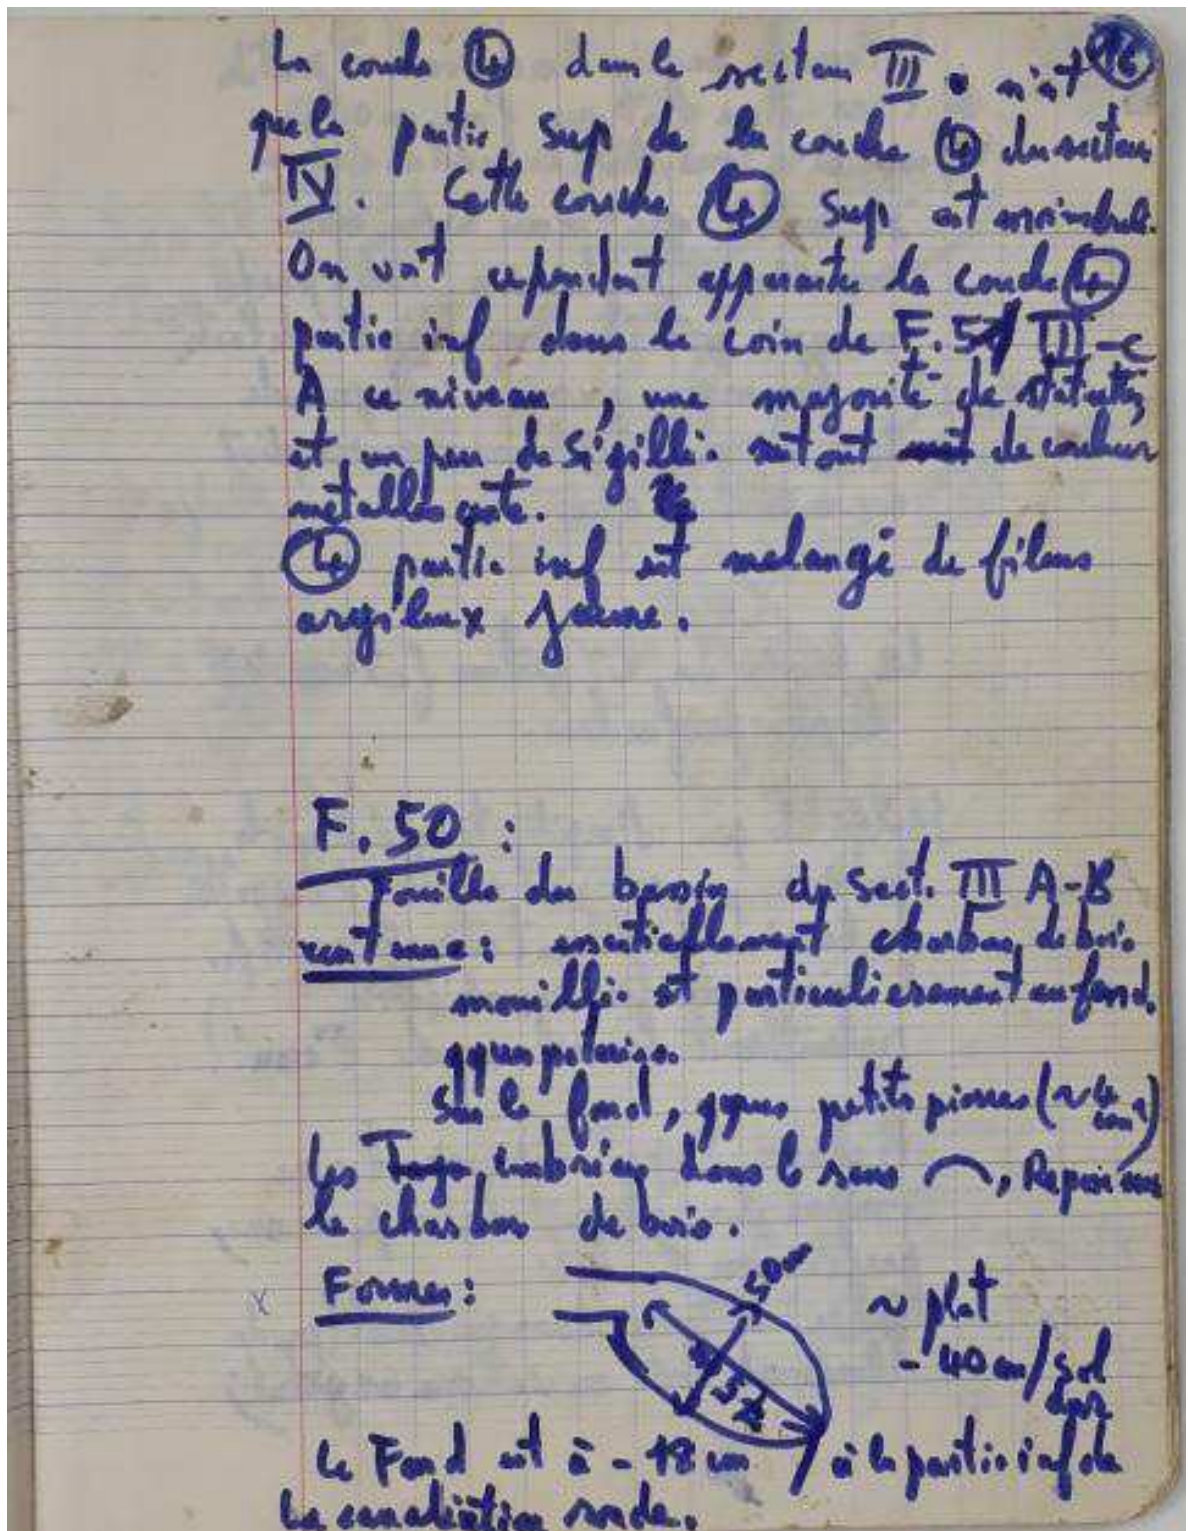 16
La couche ④ dans le secteur III n'est
que la partie sup de la couche ④ du secteur
IV. Cette couche ④ sup est
On voit cependant apparaitre la couche ④
partie inf dans le coin de F. III-c
A ce niveau, une majorité de
et un peu de sigillé. de couleur

④ partie inf est melangé de filons
argileux jaune.
F. 50 :
Fouille du bassin du Sect. III A-B
essentiellement charbon de bois
mouillé. et particulierement au fond.
qques poteries.
Sur le fond, qques petits pierres (~4 cm)
Les dans le sens ⌒,
le charbon de bois.
Formes :
50 cm
~ plat
- 40 cm/sol
Le Fond est à - 18 cm à la partie inf de
la canalisation ronde.